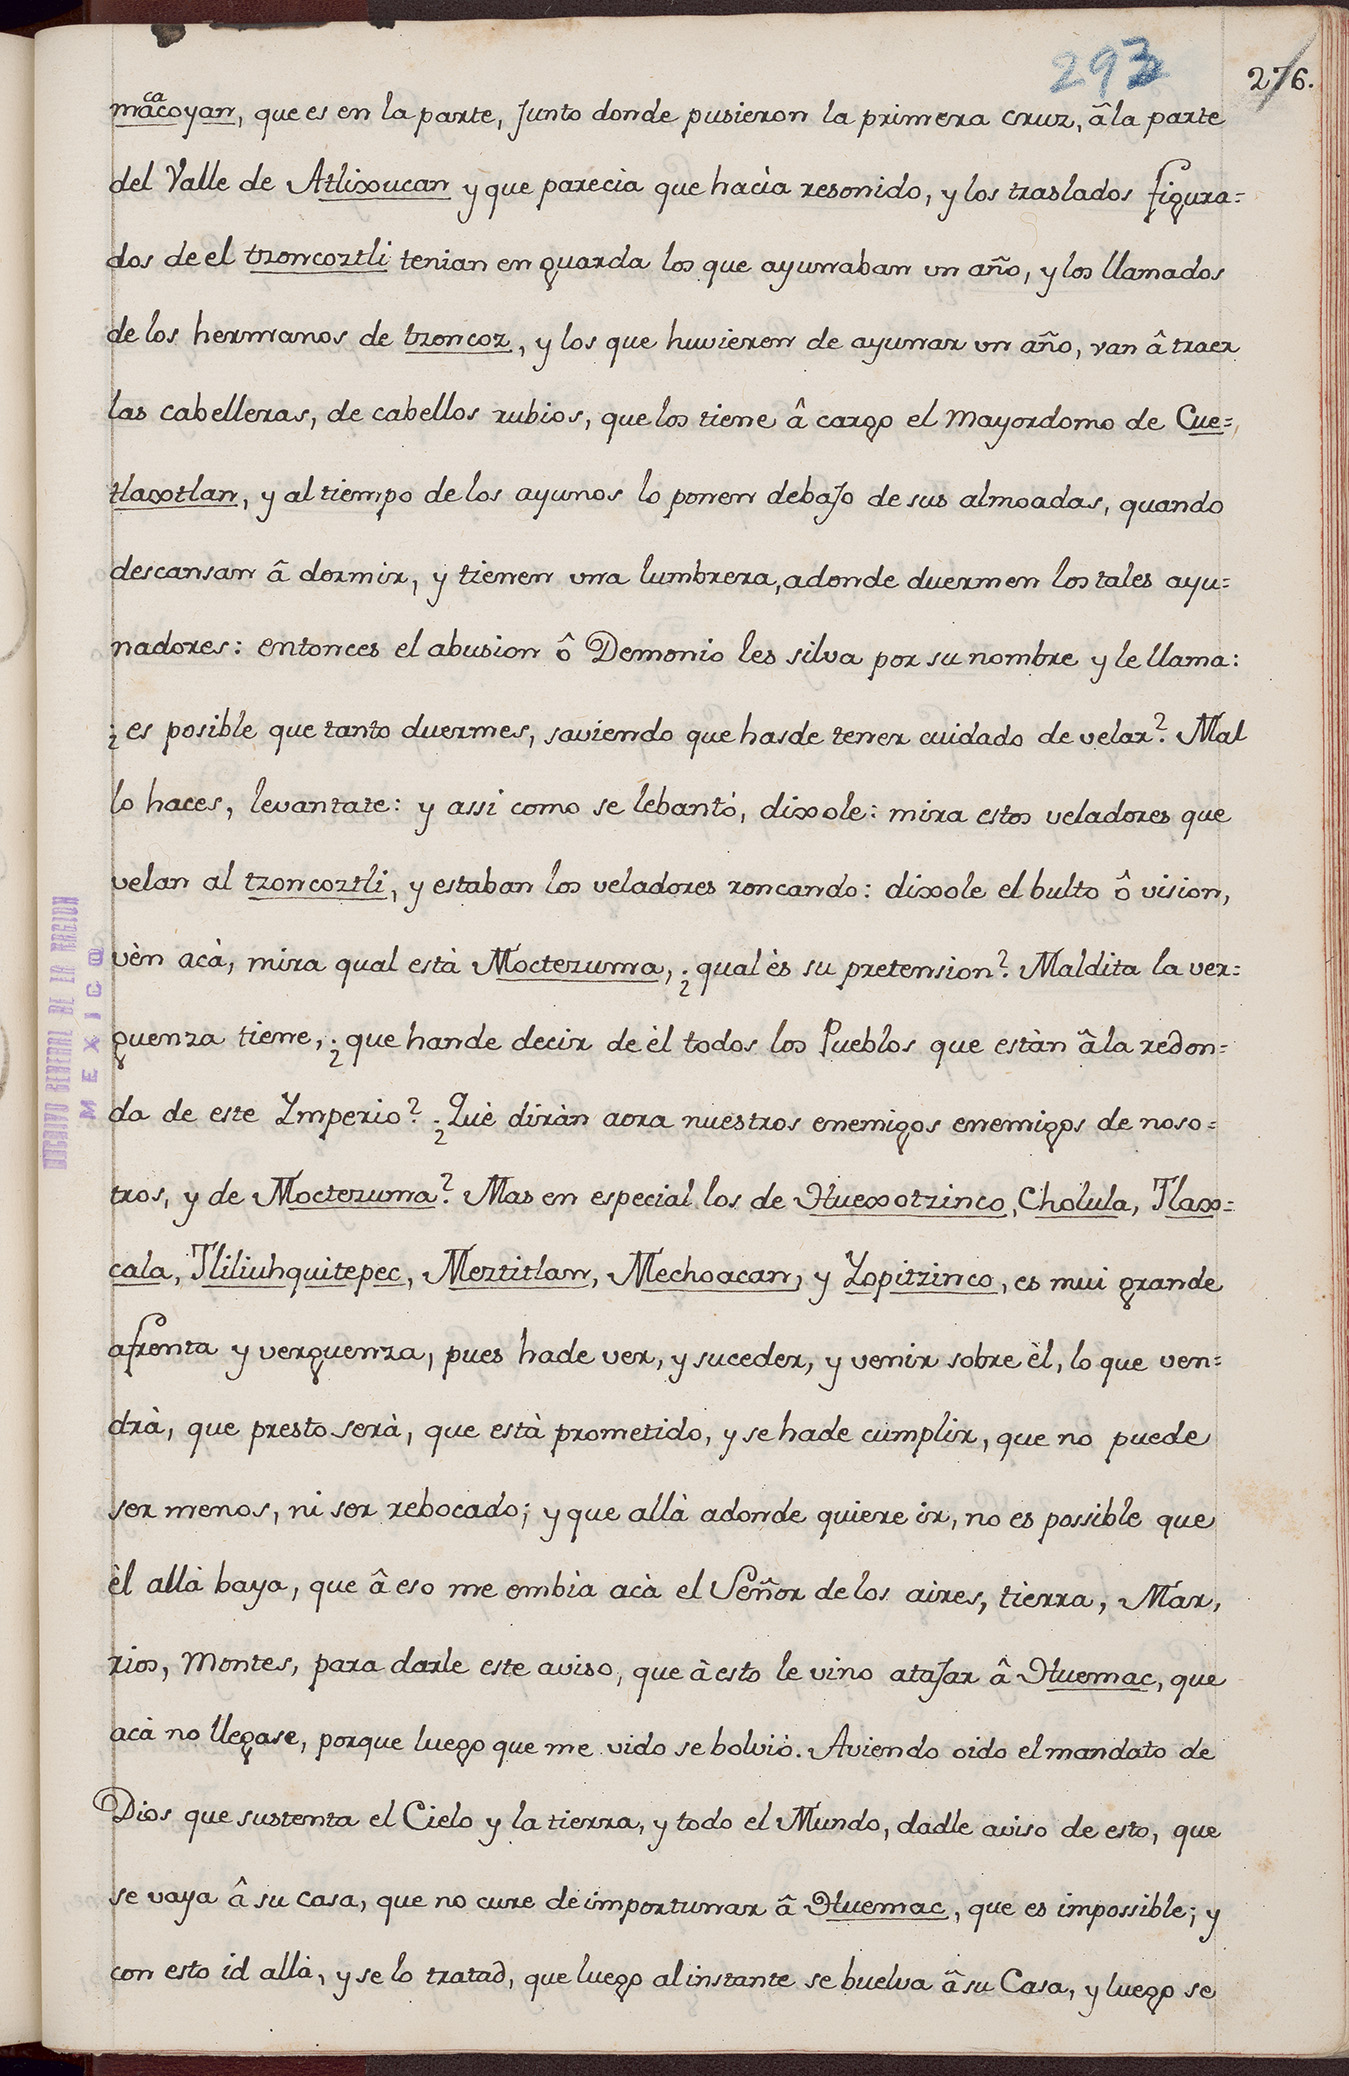 293
276.
macacoyan, que es en la parte, Junto donde pusieron la primera cruz, â la parte
del Valle de Atlixucan y que parecia que hacìa resonido, y los traslados figura=
dos de el tzoncoztli tenian en guarda los que ayunaban un año, y los llamados
de los hermanos de tzoncoz, y los que huvieren de ayunar un año, van â traer
las cabelleras, de cabellos rubios, que los tiene â cargo el Mayordomo de Cue=
tlaxtlan, y al tiempo de los ayunos lo ponen debaJo de sus almoadas, quando
descansan â dormir, y tienen una lumbrera, adonde duermen los tales ayu=
nadores: entonces el abusion ô Demonio les silva por su nombre y le llama:
¿es posible que tanto duermes, saviendo que hasde tener cuidado de velar? Mal
lo haces, levantate: y assi como se lebantó, dixole: mira estos veladores que
velan al tzoncoztli, y estaban los veladores roncando: dixole el bulto ô vision,
vèn acà, mira qual està Moctezuma, ¿qual ès su pretension? Maldita la ver=
guenza tiene, ¿que hande decir de èl todos los Pueblos que estàn â la redon=
da de este Ymperio? ¿Què diràn aora nuestros enemigos enemigos de noso=
tros, y de Moctezuma? Mas en especial los de Huexotzinco, Cholula, Tlax=
cala, Tliliuhquitepec, Meztitlan, Mechoacan, y Yopitzinco, es mui grande
afrenta y verguenza, pues hade ver, y suceder, y venir sobre èl, lo que ven=
drà, que presto serà, que està prometido, y se hade cumplir, que no puede
ser menos, ni ser rebocado; y que allà adonde quiere ir, no es possible que
èl allà baya, que â eso me embìa acà el Señor de los aires, tierra, Mar,
rios, Montes, para darle este aviso, que à esto le vino ataJar â Huemac, que
acà no llegase, porque luego que me vido se bolviò. Aviendo oido el mandato de
Dios que sustenta el Cielo y la tierra, y todo el Mundo, dadle aviso de esto, que
se vaya â su casa, que no cure de importunar â Huemac, que es impossible; y
con esto id allà, y se lo tratad, que luego al instante se buelva â su Casa, y luego se
ARCHIVO GENERAL DE LA NACION
MEXICO